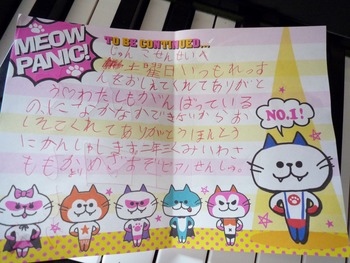 MEOW
PANIC!
TO BE CONTINUED...
じゅんこせんせいへ
土曜日いつもれっす
んをおしえてくれてありがと
う♡わたしもがんばっている
のになかなかできないからお
しえてくれてありがとうほんとう
にかんしゃします二年くみいわさ
ももかめざぞピアノせんしゅ。
NO.1!